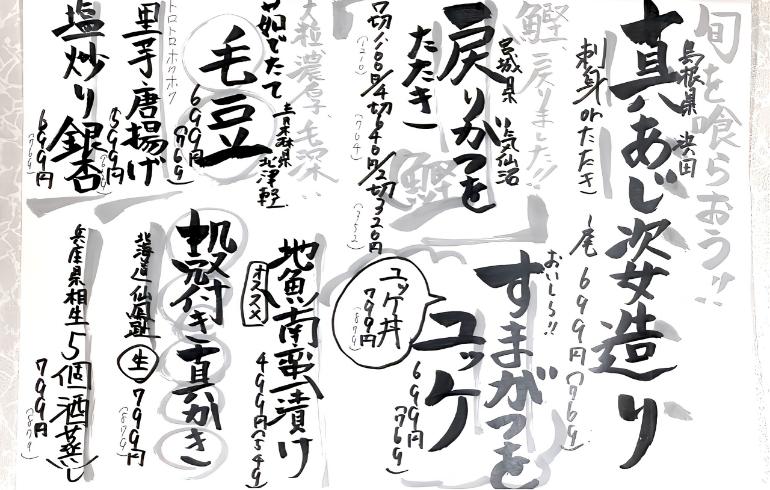 旬を喰らおう!!
島根県 浜田
真あじ姿造り
刺身orたたき
一尾 699円(769)
鰹、戻りました!!
宮城県 気仙沼
戻りがつを
たたき
7切1100円/4切640円/2切320円
(1210) (704) (352)
鰹
おいしら!!
すまがつを
ユッケ
699円
(769)
ユッケ丼
799円
(879)
大粒濃厚、毛深い
茹でたて
青森県
北津軽
毛豆
699円
(769)
トロトロホクホク
里芋唐揚げ
599円
塩炒り銀杏
699円
(769)
地魚南蛮漬け
オススメ
499円(549)
殻付き真がき
北海道仙鳳趾
生
799円
(879)
兵庫県相生
5個酒蒸し
799円
(879)